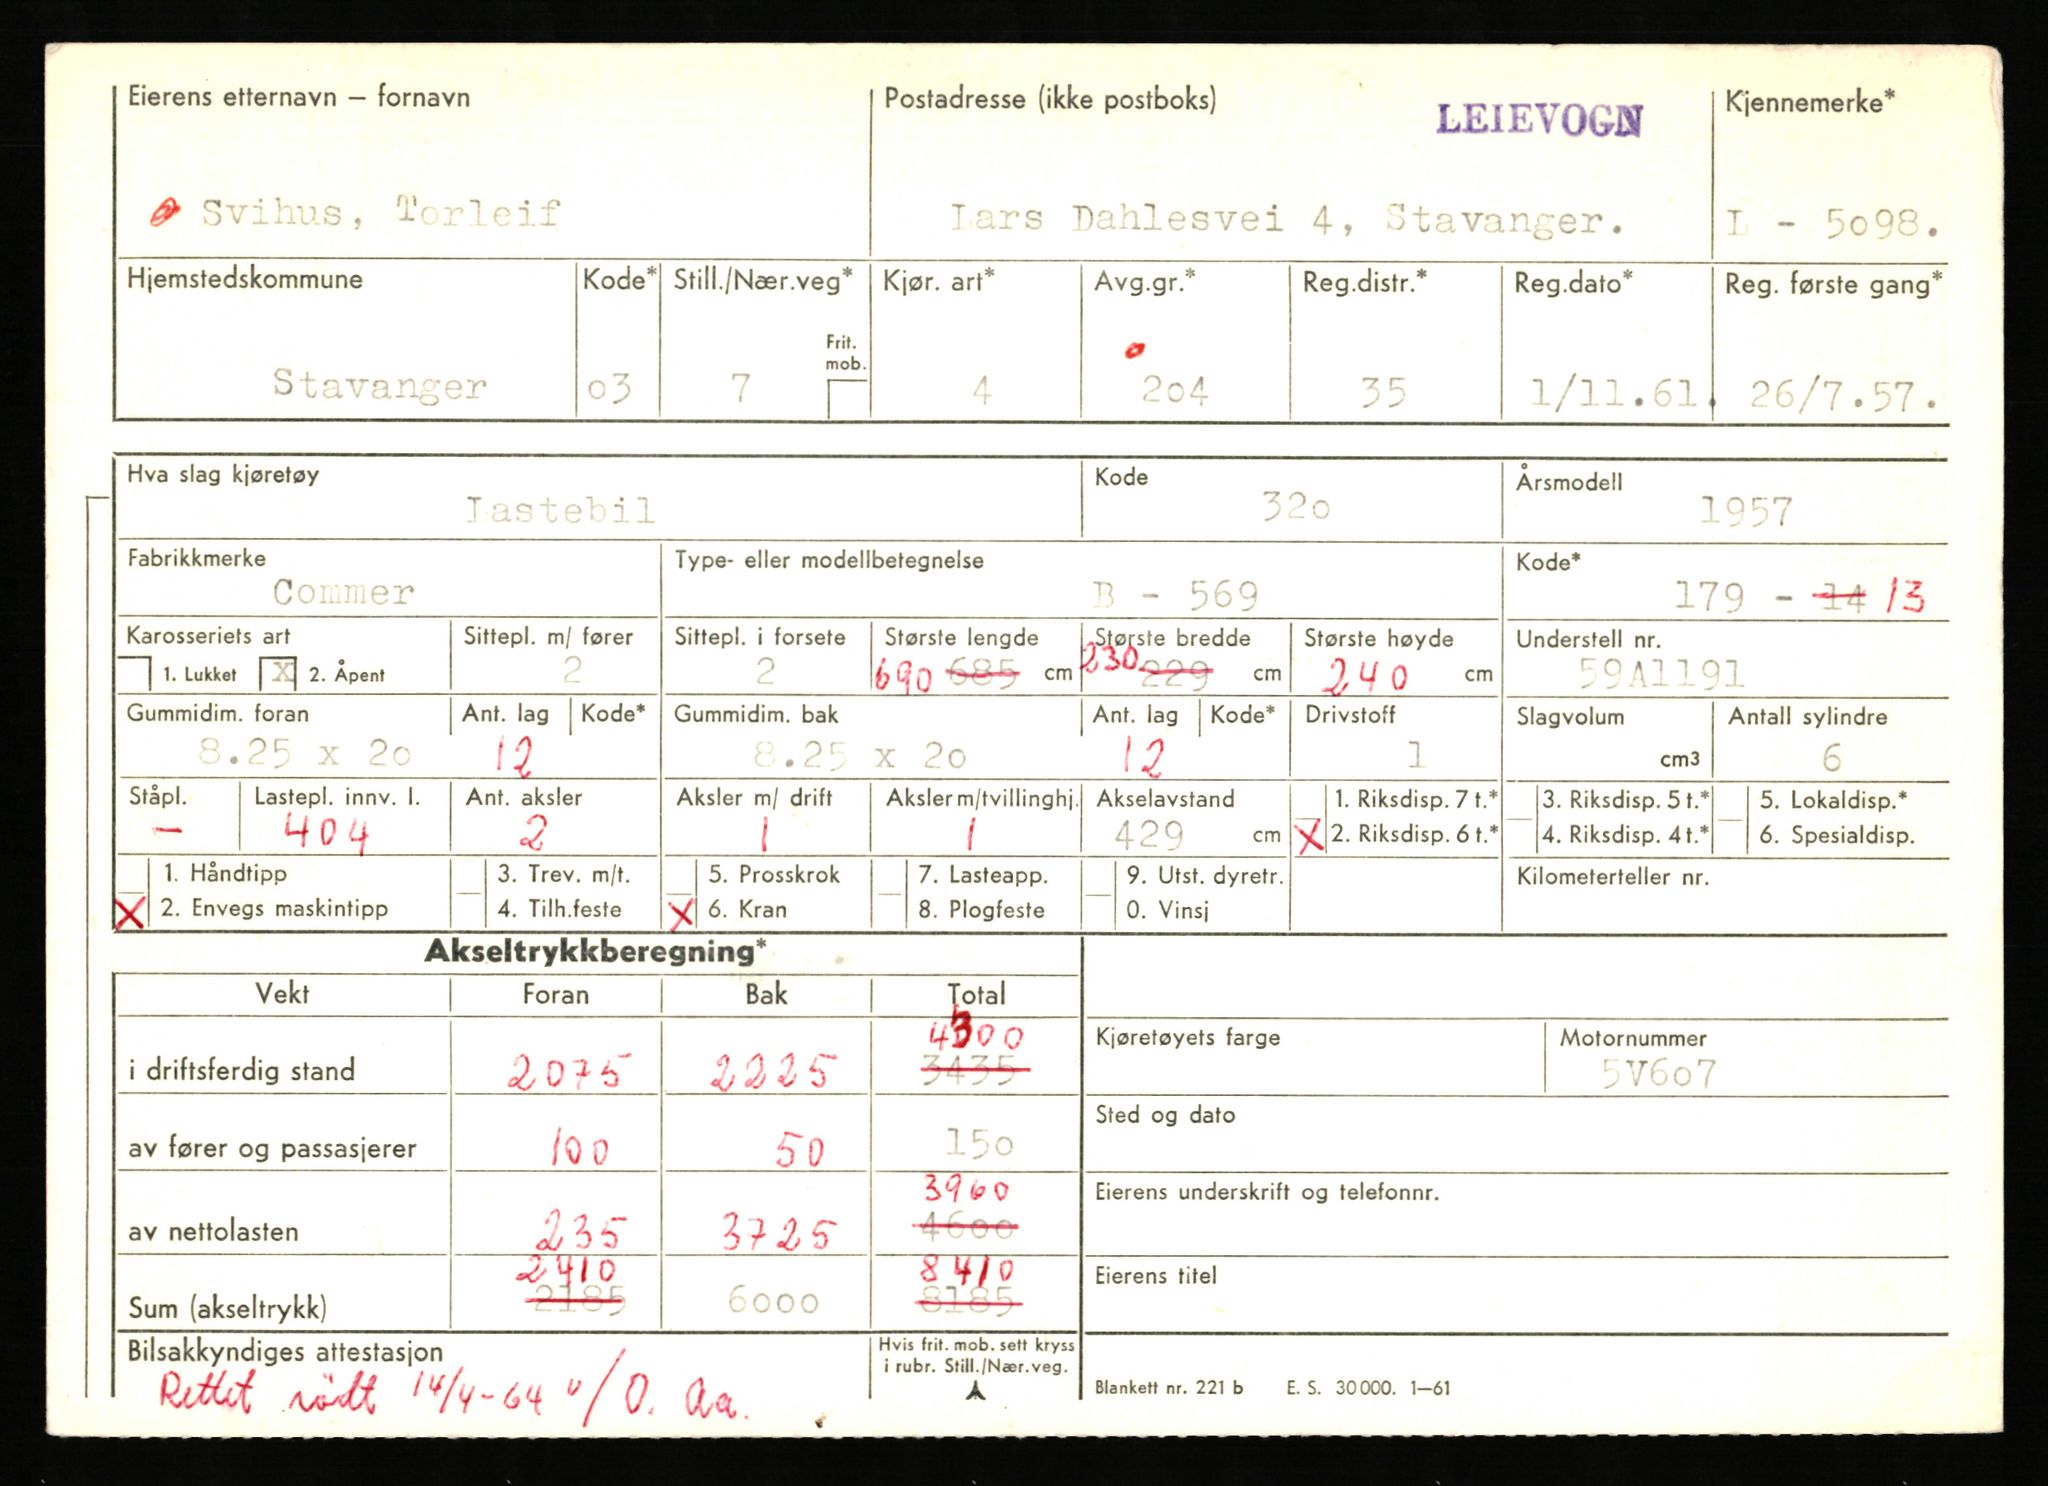 Eierens etternavn – fornavn Postadresse (ikke postboks) LEIEVOGN Kjennemerke*
Svihus, Torleif Lars Dahlesvei 4, Stavanger. L - 5098.
Hjemstedskommune Kode* Still./Nær.veg* Kjør. art* Avg.gr.* Reg.distr.* Reg.dato* Reg. første gang*
Frit. mob.
Stavanger o3 7 4 2o4 35 1/11.61. 26/7.57.
Hva slag kjøretøy Kode Årsmodell
Lastebil 32o 1957
Fabrikkmerke Type- eller modellbetegnelse Kode*
Commer B - 569 179 - 14 13
Karosseriets art Sittepl. m/ fører Sittepl. i forsete Største lengde Største bredde Største høyde Understell nr.
1. Lukket X 2. Åpent 2 2 690 685 cm 230 229 cm 240 cm 59A1191
Gummidim. foran Ant. lag Kode* Gummidim. bak Ant. lag Kode* Drivstoff Slagvolum Antall sylindre
8.25 x 2o 12 8.25 x 2o 12 1 cm3 6
Ståpl. Lastepl. innv. l. Ant. aksler Aksler m/ drift Aksler m/tvillinghj. Akselavstand 1. Riksdisp. 7 t.* 3. Riksdisp. 5 t.* 5. Lokaldisp.*
– 404 2 1 1 429 cm X 2. Riksdisp. 6 t.* 4. Riksdisp. 4 t.* 6. Spesialdisp.
1. Håndtipp 3. Trev. m/t. 5. Prosskrok 7. Lasteapp. 9. Utst. dyretr. Kilometerteller nr.
X 2. Envegs maskintipp 4. Tilh.feste X 6. Kran 8. Plogfeste 0. Vinsj
Akseltrykkberegning*
Vekt Foran Bak Total
4300
i driftsferdig stand 2075 2225 3435 Kjøretøyets farge Motornummer
5V6o7
Sted og dato
av fører og passasjerer 100 50 15o
3960
av nettolasten 235 3725 46oo Eierens underskrift og telefonnr.
2410 8410
Sum (akseltrykk) 2185 6000 8185 Eierens titel
Bilsakkyndiges attestasjon Hvis frit. mob. sett kryss
i rubr. Still./Nær.veg.
Rettet rödt 14/4-64 /O. Aa. Blankett nr. 221 b E. S. 30 000. 1–61